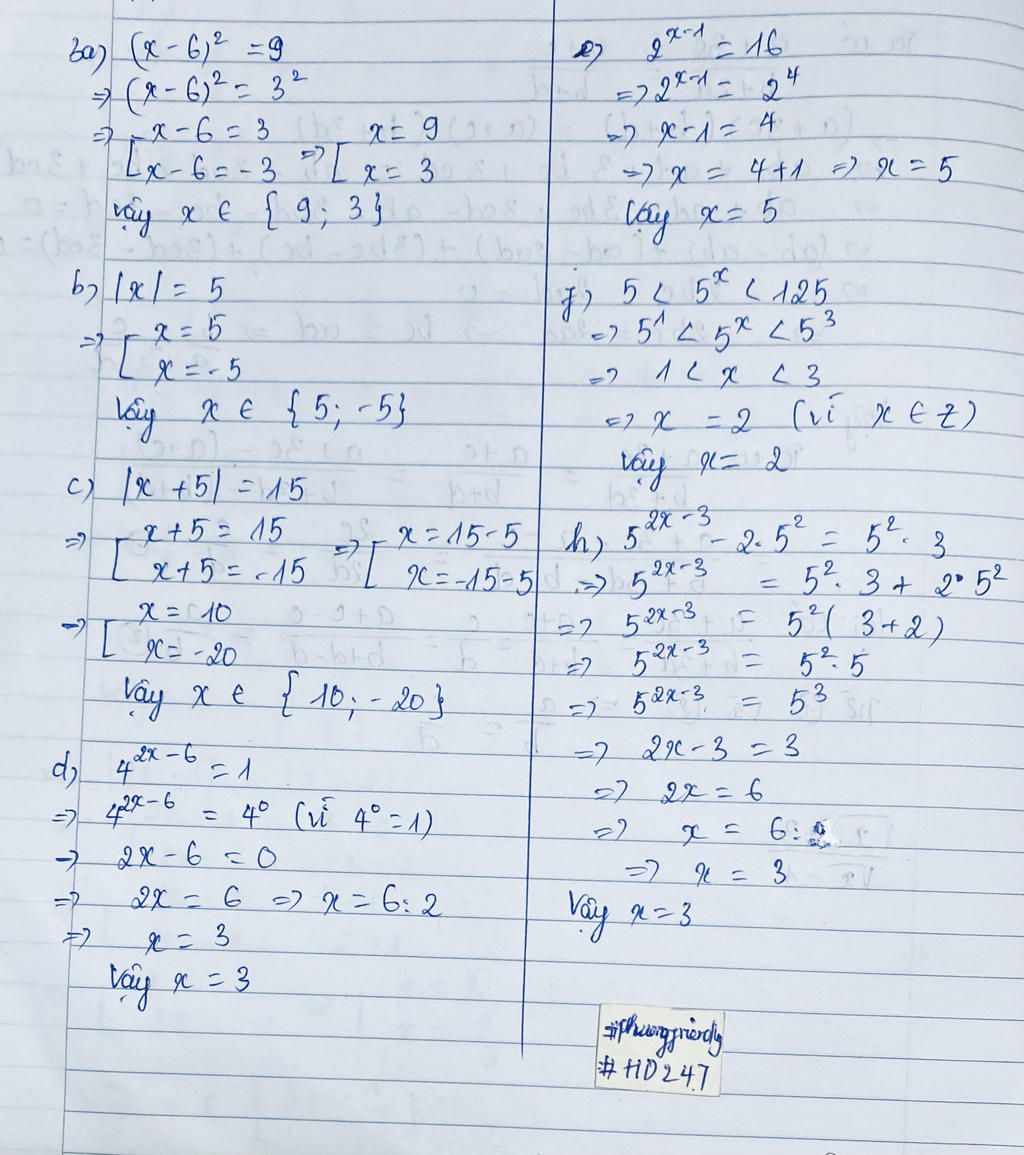 3a) (x - 6)² = 9
=> (x - 6)² = 3²
=> [ x - 6 = 3 => [ x = 9
x - 6 = - 3 x = 3
Vậy x ∈ { 9; 3 }
b) |x| = 5
=> [ x = 5
x = - 5
Vậy x ∈ { 5; -5 }
c) |x + 5| = 15
=> [ x + 5 = 15 => [ x = 15 - 5
x + 5 = - 15 x = - 15 - 5
=> [ x = 10
x = - 20
Vậy x ∈ { 10; - 20 }
d) 4^{2x - 6} = 1
=> 4^{2x - 6} = 4⁰ (vì 4⁰ = 1)
=> 2x - 6 = 0
=> 2x = 6 => x = 6 : 2
=> x = 3
Vậy x = 3
e) 2^{x-1} = 16
=> 2^{x-1} = 2⁴
=> x - 1 = 4
=> x = 4 + 1 => x = 5
Vậy x = 5
f) 5 < 5^x < 125
=> 5¹ < 5^x < 5³
=> 1 < x < 3
=> x = 2 (vì x ∈ Z)
Vậy x = 2
h) 5^{2x - 3} - 2 . 5² = 5² . 3
=> 5^{2x - 3} = 5² . 3 + 2 . 5²
=> 5^{2x - 3} = 5² ( 3 + 2 )
=> 5^{2x - 3} = 5² . 5
=> 5^{2x - 3} = 5³
=> 2x - 3 = 3
=> 2x = 6
=> x = 6 : 2
=> x = 3
Vậy x = 3
#HD247